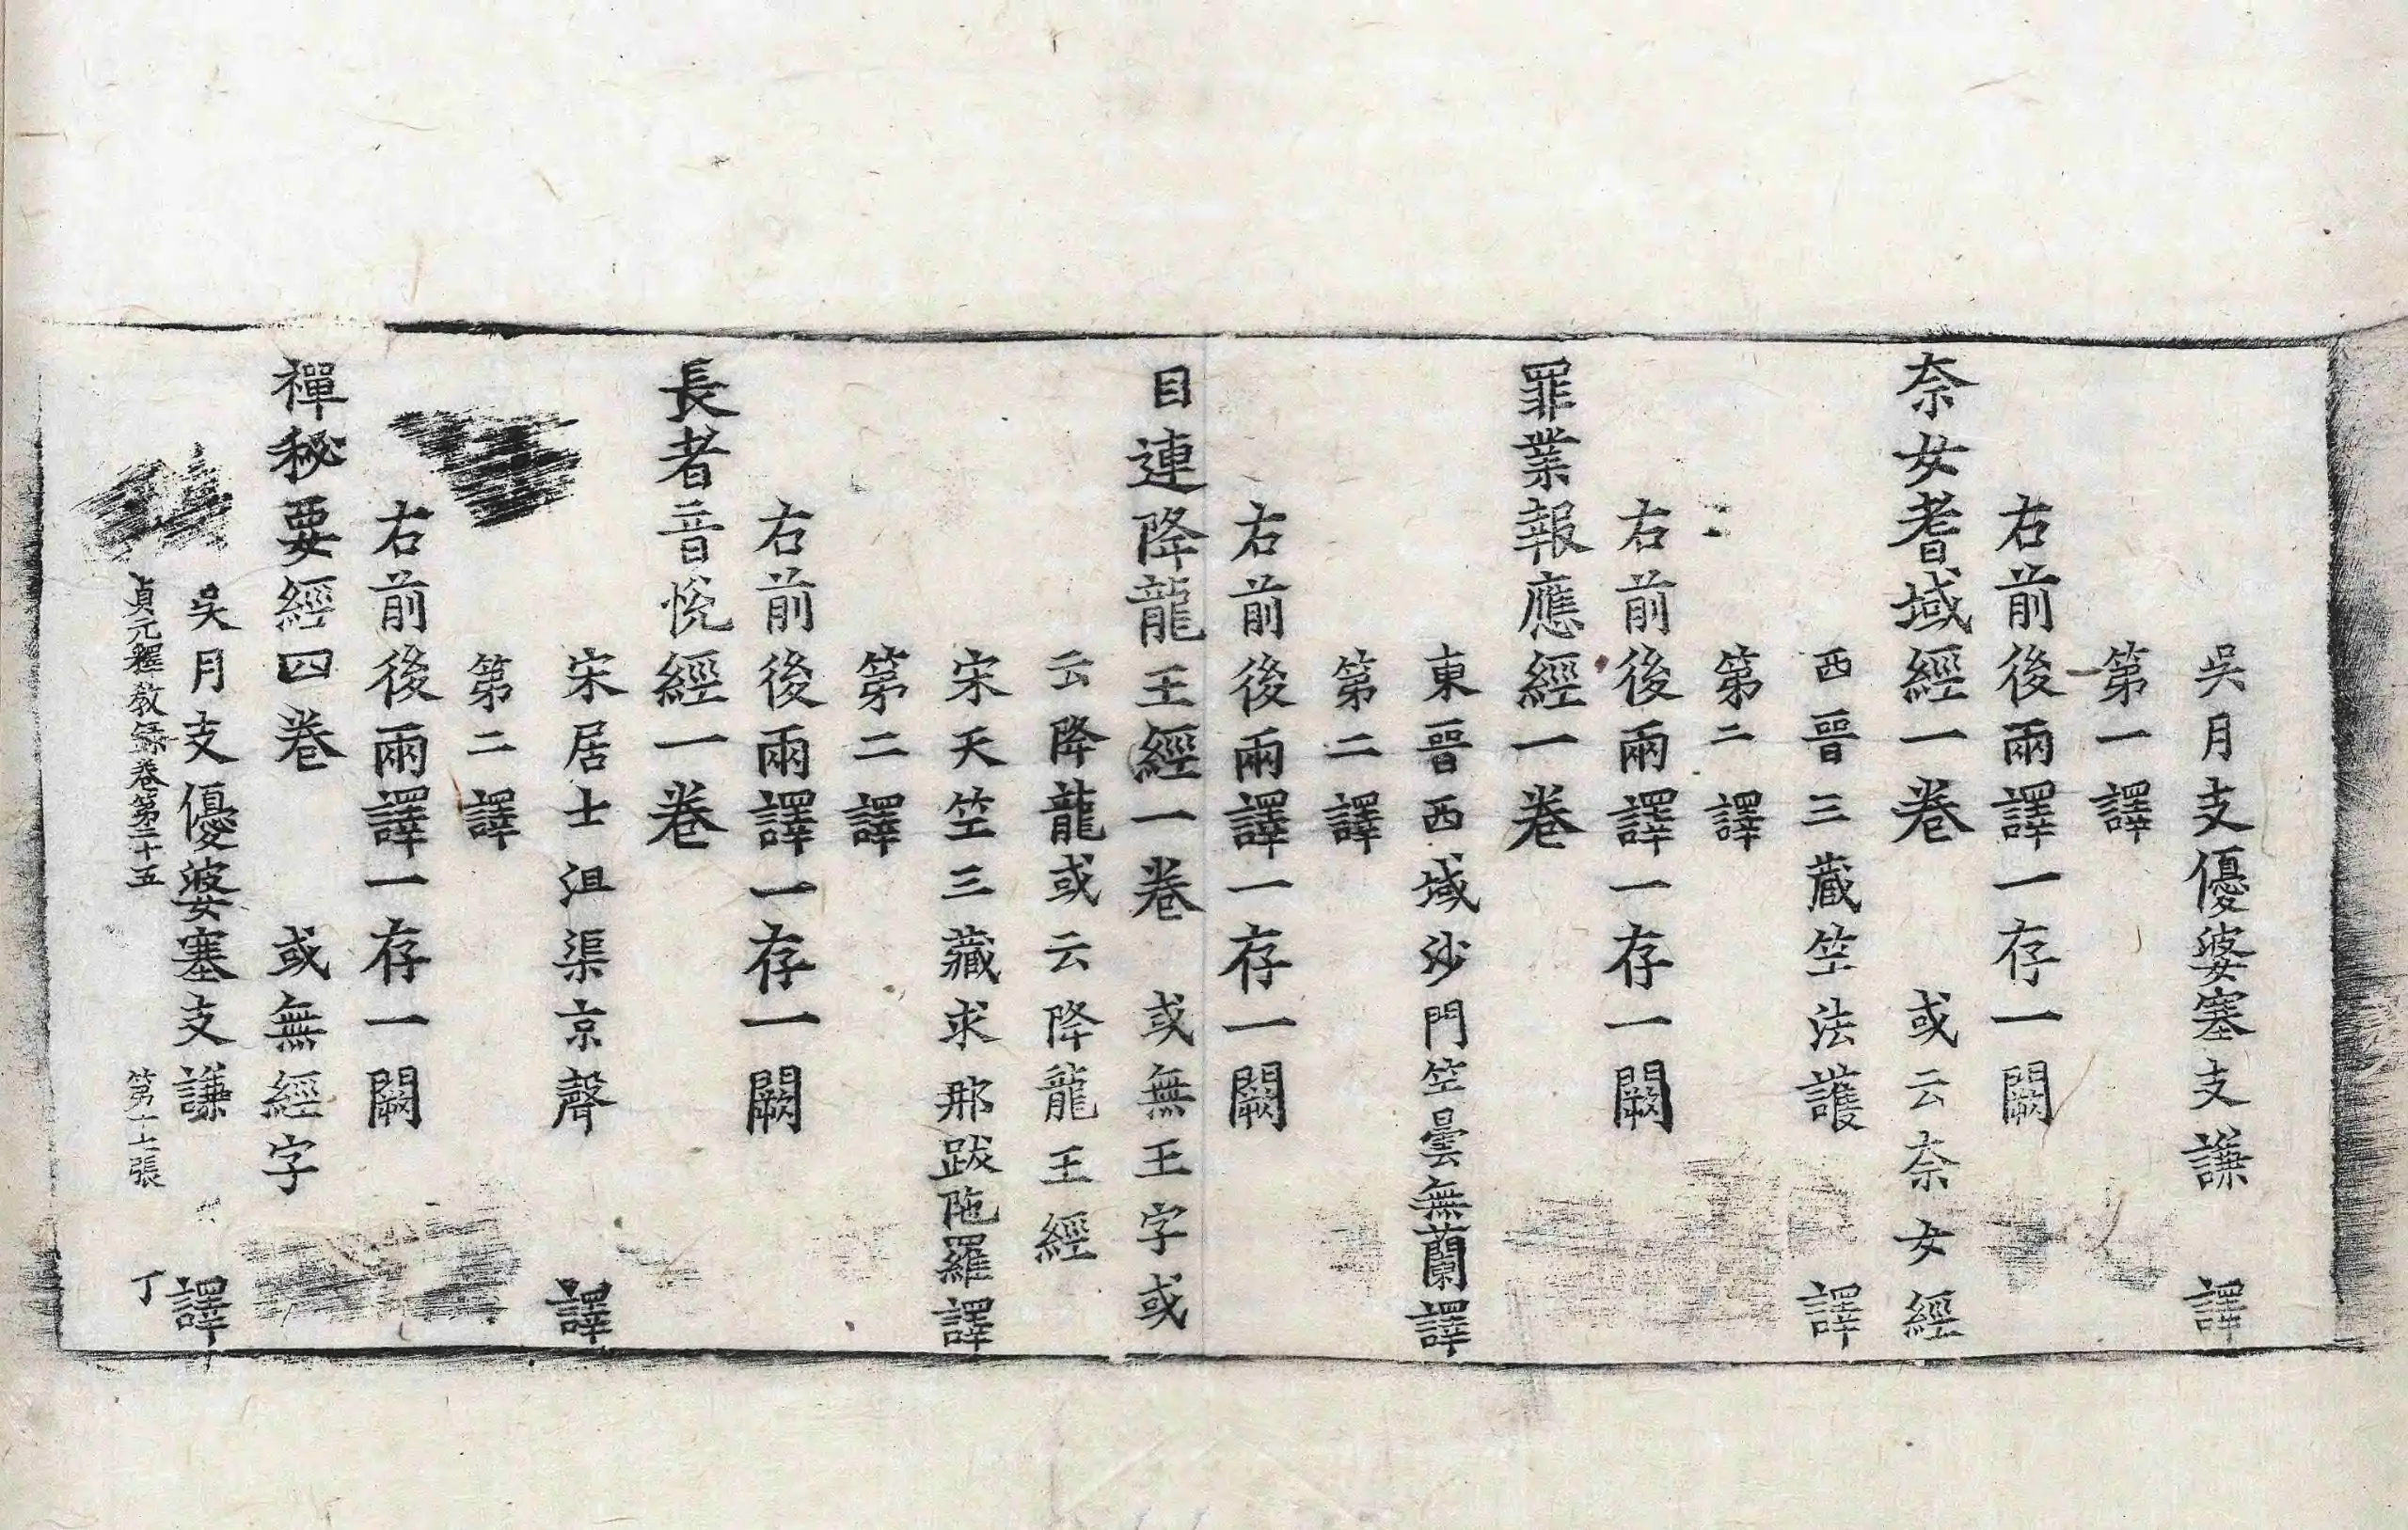 吳月支優婆塞支謙　譯
第一譯
右前後兩譯一存一闕
奈女耆域經一卷　或云奈女經
西晉三藏竺法護　譯
第二譯
右前後兩譯一存一闕
罪業報應經一卷
東晉西域沙門竺曇無蘭譯
第二譯
右前後兩譯一存一闕
目連降龍王經一卷　或無王字或
云降龍或云降龍王經
宋天竺三藏求那跋陁羅譯
第二譯
右前後兩譯一存一闕
長者音悅經一卷
宋居士沮渠京聲　譯
第二譯
右前後兩譯一存一闕
禪秘要經四卷　或無經字
吳月支優婆塞支謙　譯
貞元釋教錄卷第二十五　第十七張　丁